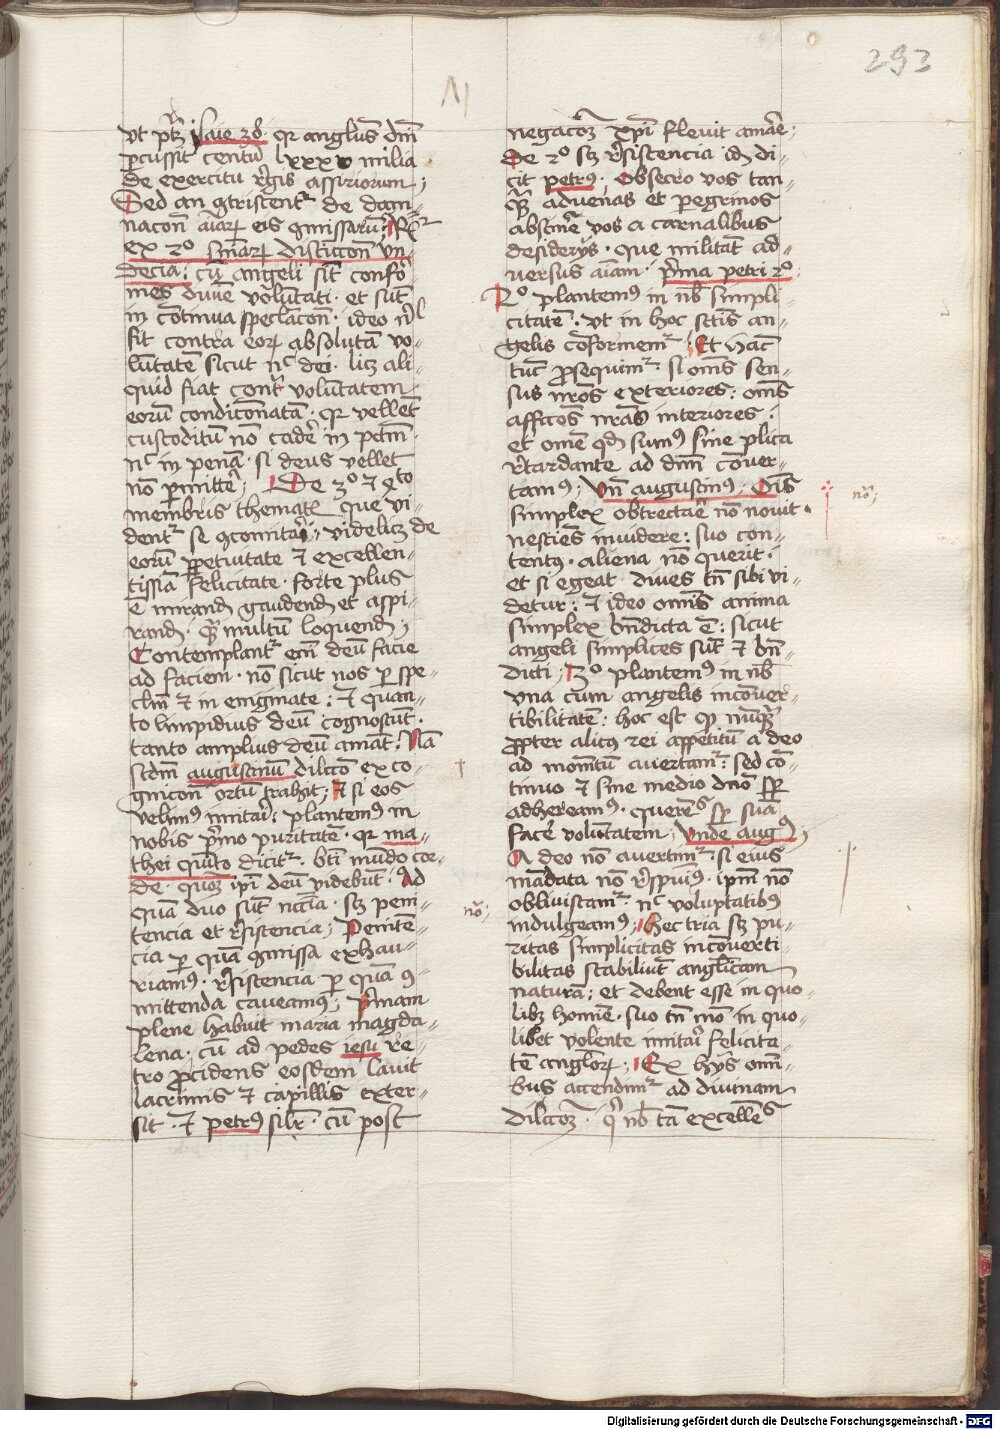 293
vt ptꝫ Isaie 38. qr anglus dm̄
ꝑcussit centū lxxxv milia
de exercitu regis assiriorum;
Sed an ꝯtristentr de dam-
nacōn aīarꝝ eis ꝯmissarū; Rr
ex 2º sniarꝝ distictōn vn-
decia; cū angeli sīt confo-
mes divīe volūtati. et sūt
in cōtinua speclacōn. ideo nl
fit contra eorꝝ absolutā vo-
lūtatē sicut nc dei. licꝫ ali-
quid fiat contr voluntatem
eorū condicōnatā. qr vellēt
custoditū nō cadēr in pctm̄.
nc in penā. si deus vellet
nō ꝑmitter; De 3º et 4to
membris thematꝭ que vi-
dentr se ꝯcomitari; videlicꝫ de
eorū ꝑpetuitate et excellen-
tissīa felicitate. forte plus
ē mirand gaudend et aspi-
rand. qm multū loquend;
Contemplantr em̄ deū facie
ad faciem. nō sicut nos ꝑ spe-
clm̄ et in enigmate; et quan-
to limpidius deū cognoscūt.
tanto amplius deū amāt; Nā
scdm augustinū dilctō ex co-
gnicōn ortū trahit; Et si eos
velimꝰ imitari; plantemꝰ in
nobis pꝛimo puritatē. qr ma-
thei quīto dicitr. bti mūdo cor-
de. quoꝫ ipi deū videbūt; Ad
quā duo sūt nccīa. sꝫ peni-
tencia et resistencia; Penitē-
cia ꝑ quā ꝯmissa exhau-
riamꝰ. resistencia ꝑ quā ꝯ-
mittenda caveamꝰ; Pꝛimam
plene habuit maria magda-
lena. cū ad pedes iesu re-
tro ꝓcidens eosdem lavit
lacrimis et capillis exter-
sit. et petrꝰ silr. cū post
negacōꝫ xpi flevit amāre;
De 2º sꝫ resistencia id di-
cit petrꝰ. Obsecro vos tan-
qm advenas et ꝑegrinos
abstinēr vos a carnalibus
desiderijs. que militāt ad-
versus aīam. pꝛima petri 2º;
2º plantemꝰ in nob simpli-
citatē. vt in hoc sctīs an-
gelis cōformemr; Et hāc
tūc ꝓsequimr. si om̄s sen-
sus nr̄os exteriores; om̄s
affectōs nr̄as interiores;
et omē qd sumꝰ sine plica
retardante ad dm̄ cōver-
tamꝰ; Vn̄ augustinꝰ; Om̄is
simplex obtrectāe nō novit.
nō;
nesciēs invidere; suo con-
tentꝰ. aliena nō querit.
et si egeat. dives tn̄ sibi vi-
detur; et ideo omīs anima
simplex bn̄dicta ē; sicut
angeli simplices sūt et bn̄-
dicti; 3º plantemꝰ in nob
vna cum angelis incōver-
tibilitatē; hoc est qꝫ nūqm
ꝓpter alicꝰ rei appetitū a deo
ad momtū avertamr; sed cō-
tinuo et sine medio dn̄o sꝑ
adhereamꝰ. querētꝭ sꝑ suā
facēr voluntatem; Vnde augꝰ;
A deo nō avertimr. si eius
mādata nō respuimꝰ. ipm nō
nō;
obliviscamr. nc voluptatibꝰ
indulgeamꝰ; hec tria sꝫ pu-
ritas simplicitas incōverti-
bilitas stabiliūt anglicam
naturā; et debent esse in quo-
libꝫ homīe. suo tn̄ mō in quo-
libet volente imitari felicita-
tē anglorꝝ; Ex hijs omi-
bus accendimr ad divinam
dilctōꝫ. qi nob tā excellētꝭ
Digitalisierung gefördert durch die Deutsche Forschungsgemeinschaft - DFG